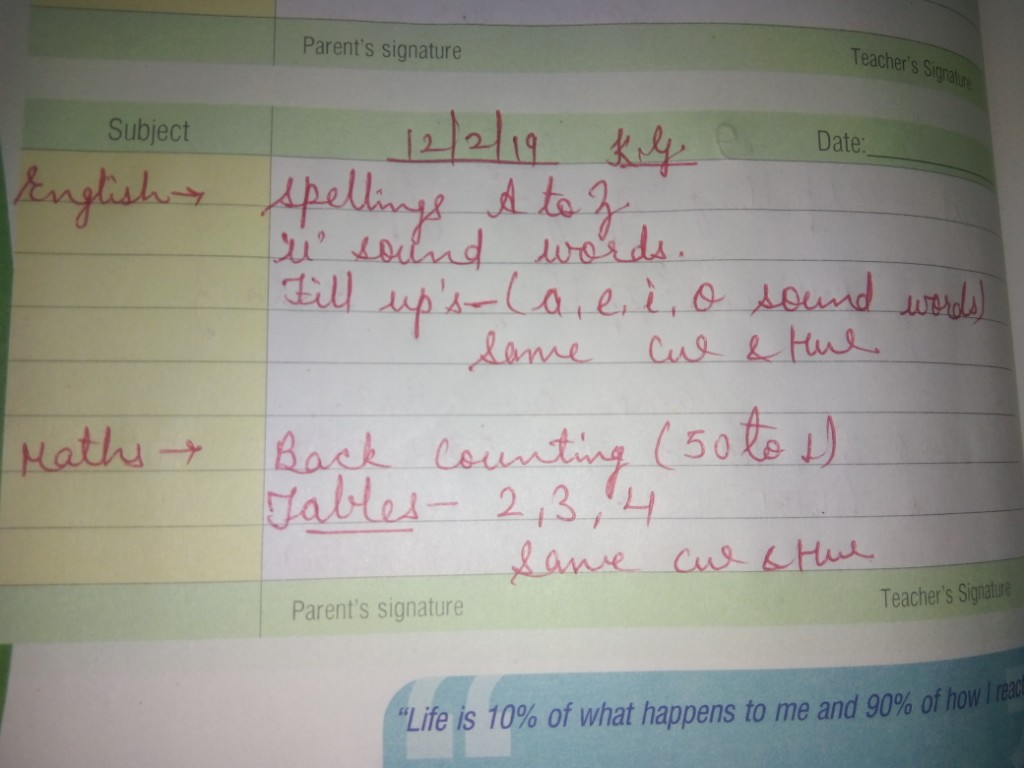 Parent's signature Teacher's Signature
Subject 12/2/19 K.G. Date:
English → Spellings A to Z
'u' sound words.
Fill up's - (a, e, i, o sound words)
Same cw & Hw
Maths → Back Counting (50 to 1)
Tables - 2, 3, 4
Same cw & Hw
Parent's signature Teacher's Signature
"Life is 10% of what happens to me and 90% of how I reac